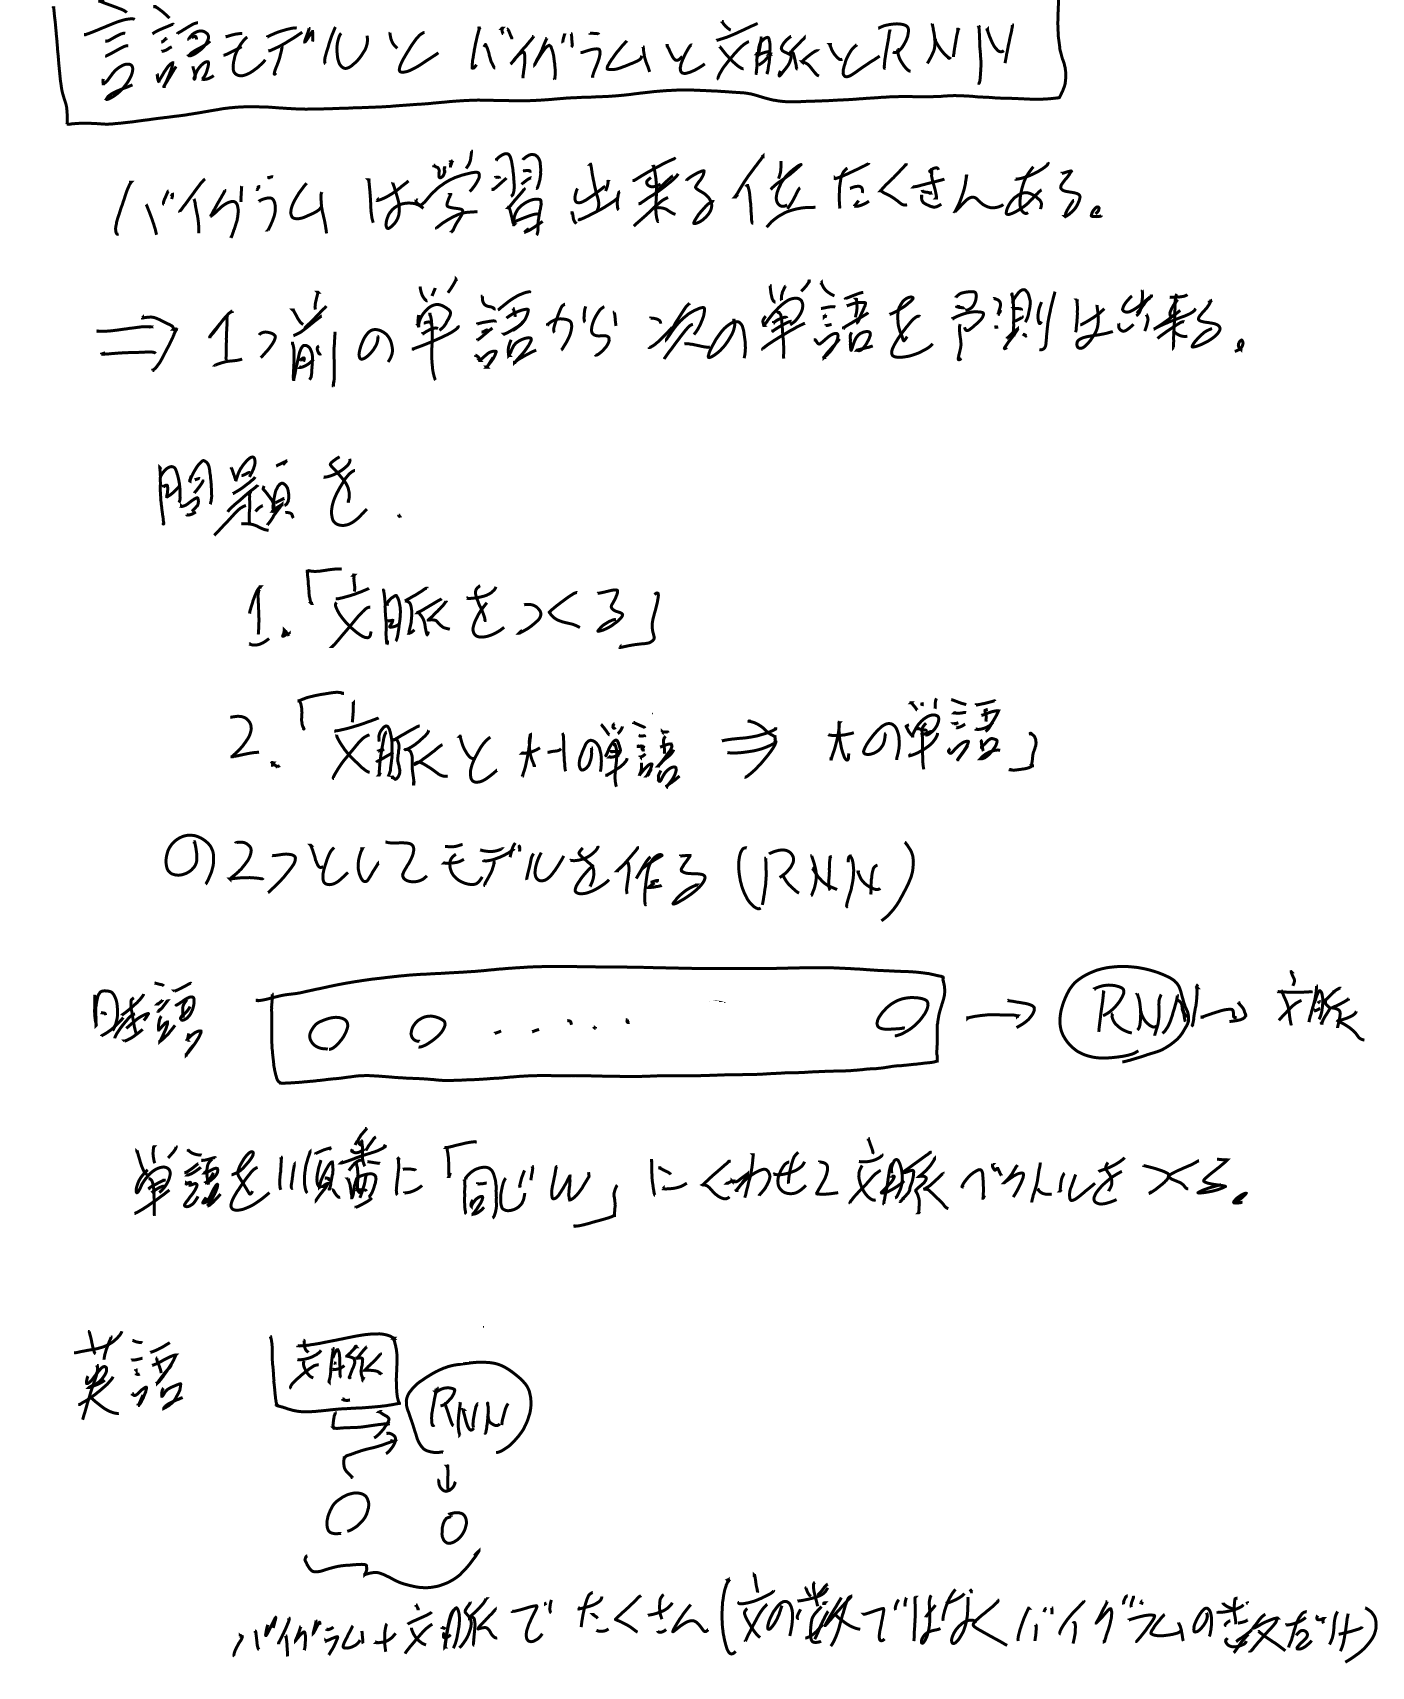 言語モデルとバイグラムと文脈とRNN
バイグラムは学習出来る位たくさんある。
⇒ 1つ前の単語から次の単語を予測は出来る。
問題を.
1.「文脈をつくる」
2.「文脈と t-1の単語 ⇒ tの単語」
の2つとしてモデルを作る (RNN)
日本語 ○ ○ ..... ○ → RNN → 文脈
単語を順番に「同じW」にくわせて文脈ベクトルをつくる。
英語 文脈 RNN
バイグラム+文脈でたくさん(文の数ではなくバイグラムの数だけ)